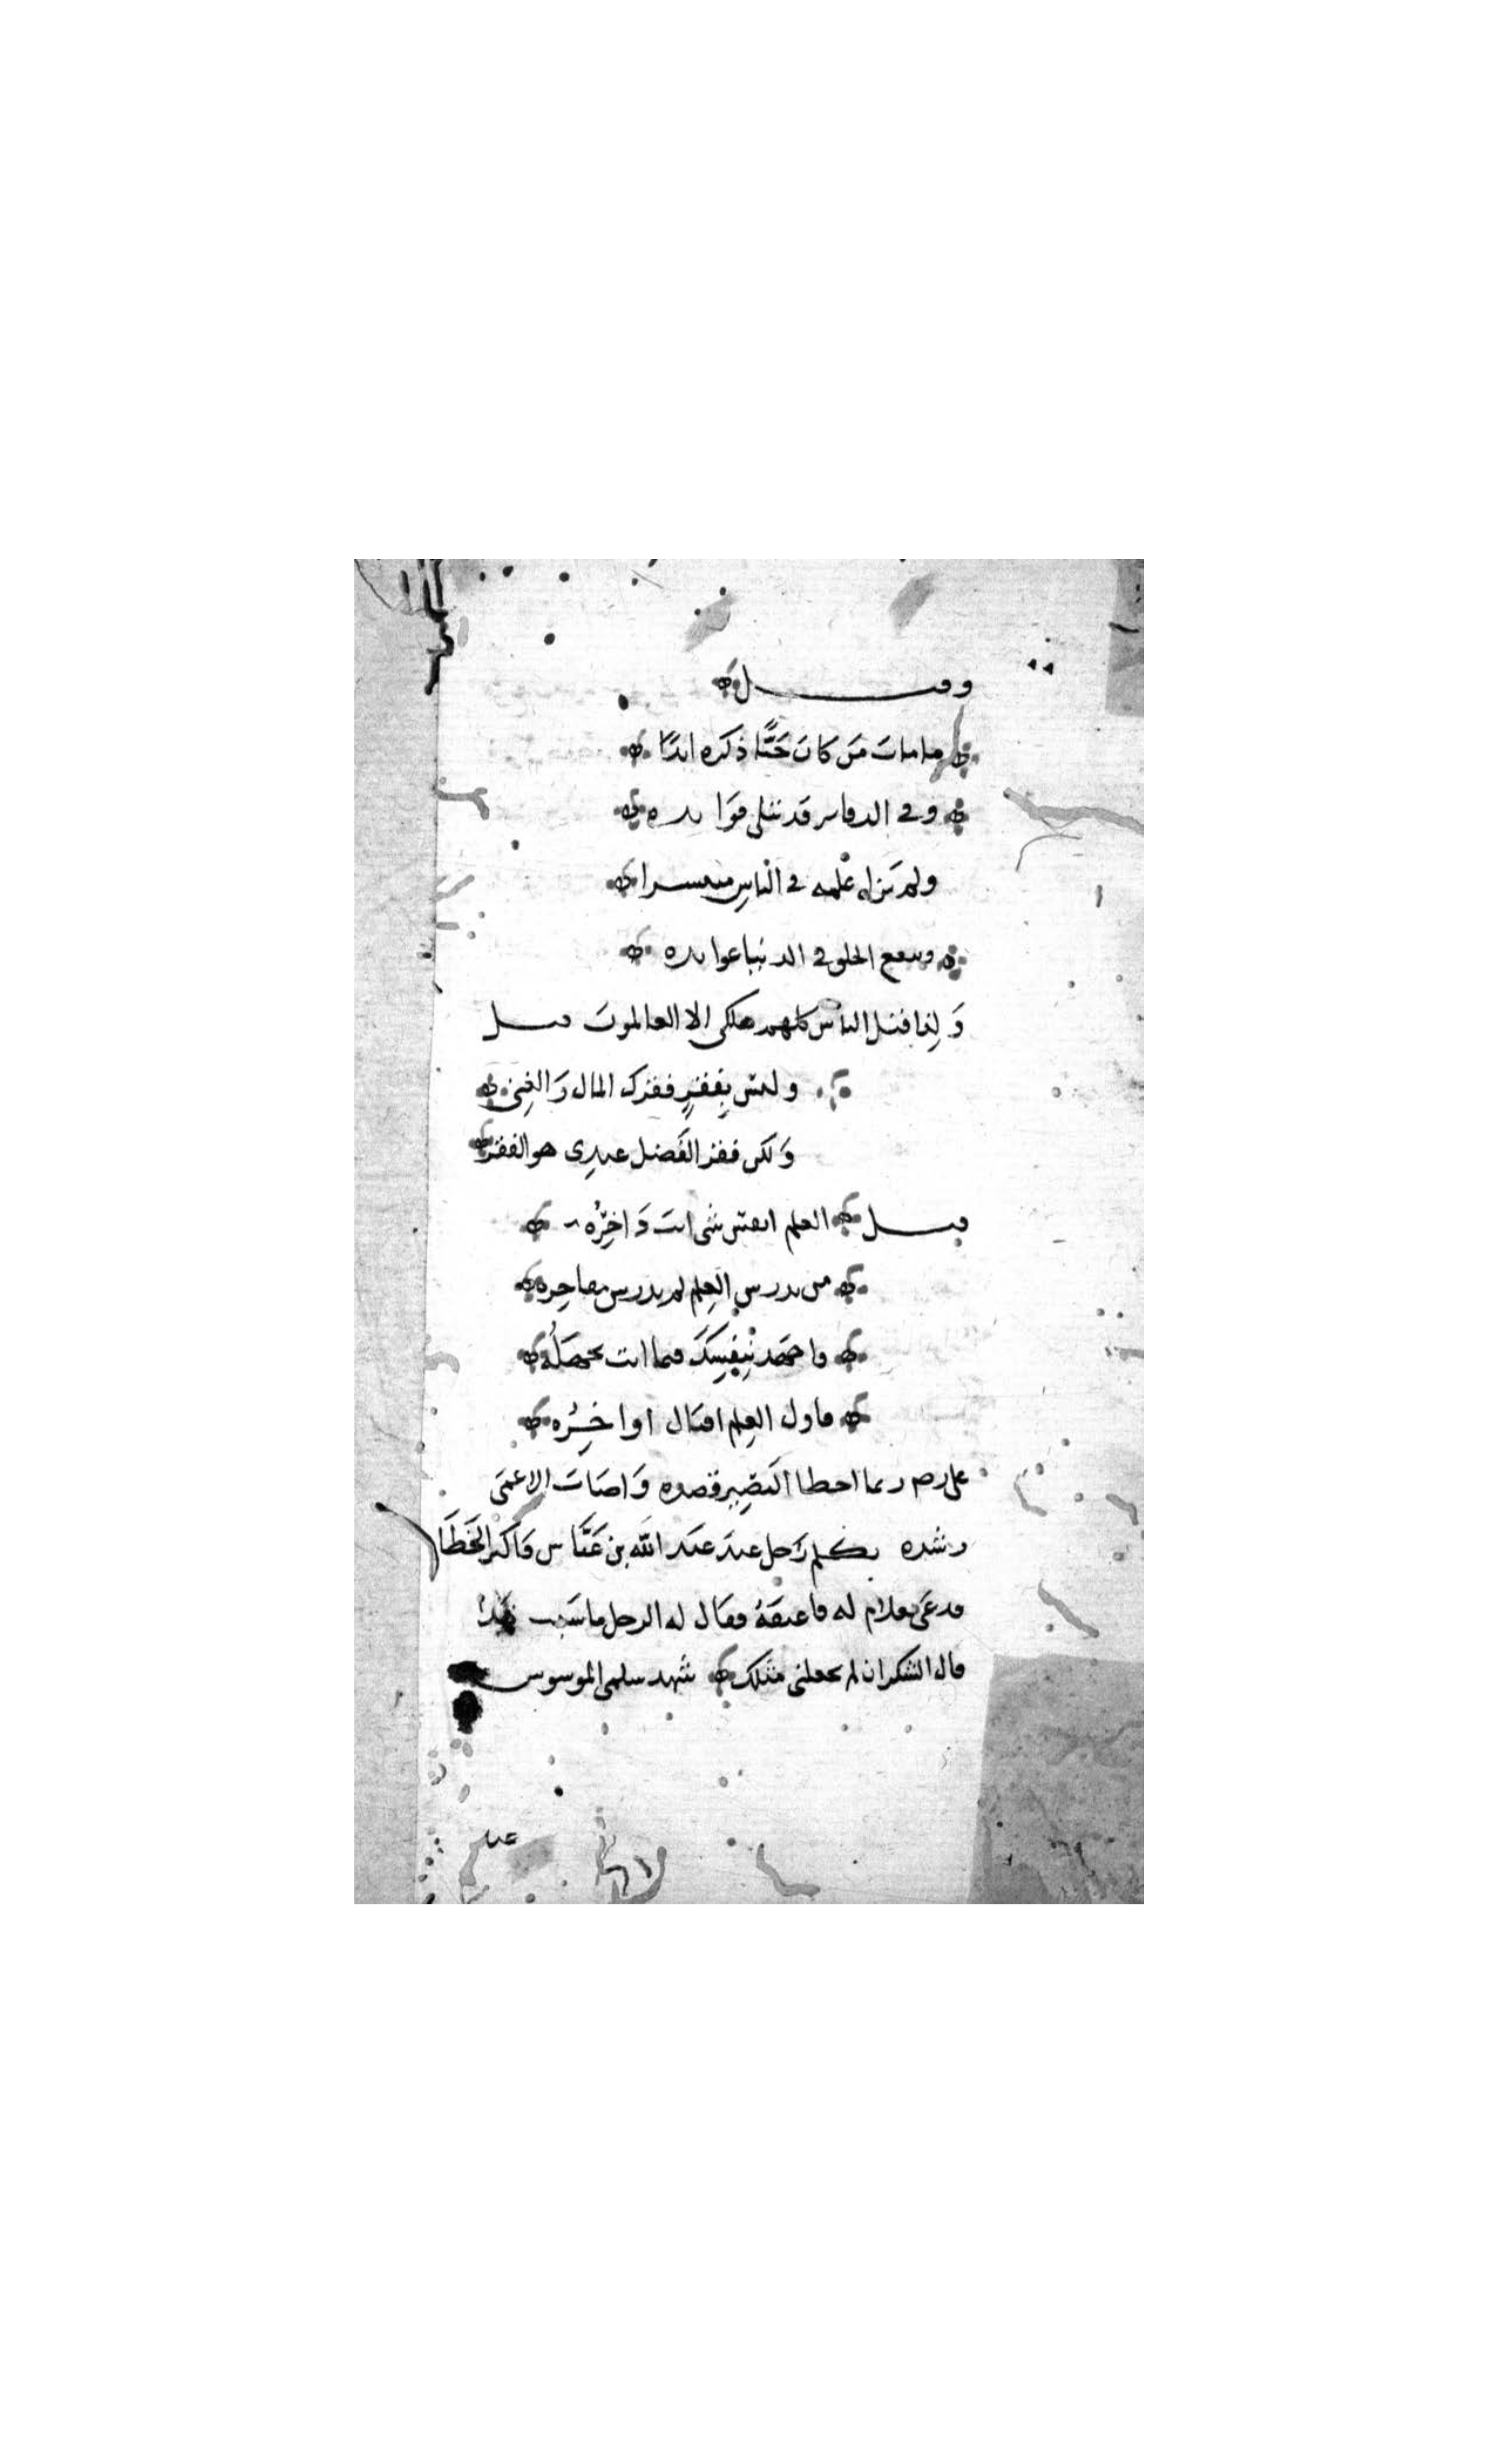 وقيل
ما مات من كان حَيًّا ذكره ابدًا
وفي الدفاتر قد تتلى فوايده
ولم يزل علمه في الناس منتشرا
وينفع الخلق في الدنيا عوايده
وَلهذا قيل الناس كلهم هلكى الا العالمون قيل
وليس بِفقرٍ فقرك المال وَالغِنى
وَلكن فقر الفَضل عندي هو الفقر
قيل العلم انفس شي انت دَاخِرُه
من يدرس العِلم لم يدرس مفاخره
واجهد بنفسِكَ فيما انت تحصلُه
فاول العِلم اقبال اواخِرُه
علي رضه ربما اخطا البَصِير قصده وَاصَابَ الاعمَى
رشده تكلم رَجل عندَ عبد الله بن عَبَّاس فَاكثر الخَطَا
فدعَى بغلام له فاعتقهُ فقال له الرجل ما سَبب هَذا
قال الشكر ان لم يجعلني مثلك شهد سلمى الموسوس
عند